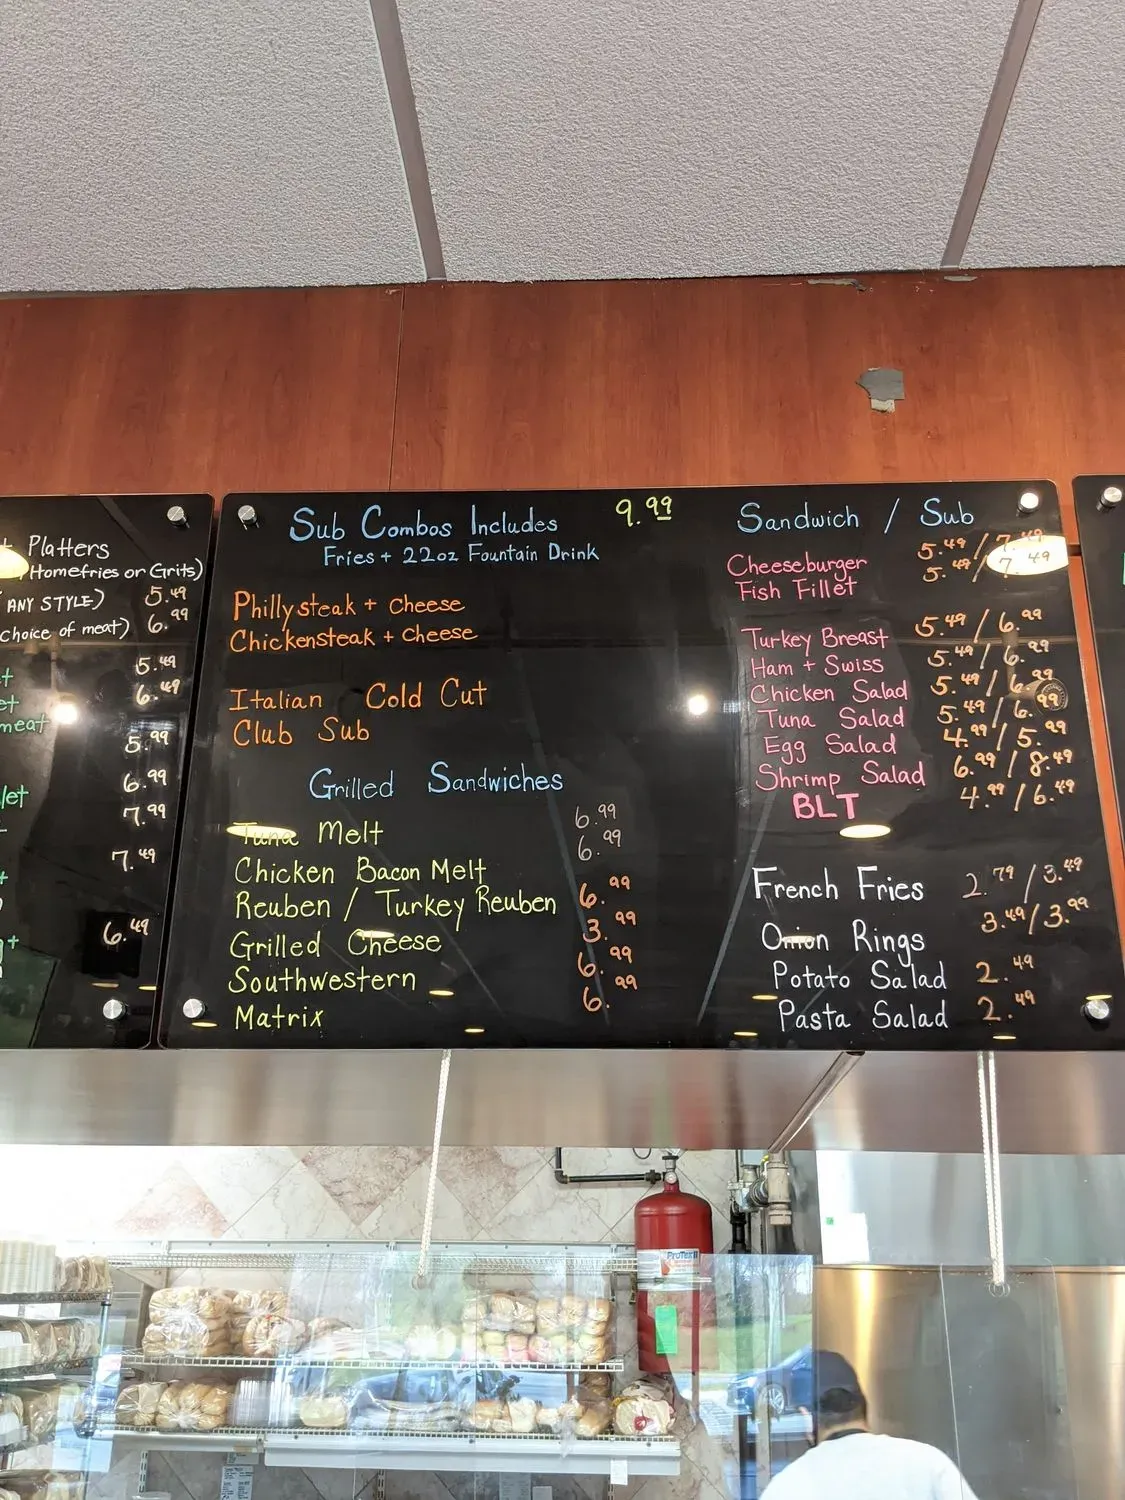 Platters
Homefries or Grits)
ANY STYLE) 5.49
choice of meat) 6.99
5.49
6.49
meat
5.99
6.99
7.99
7.49
6.49
Sub Combos Includes 9.99
Fries + 22oz Fountain Drink
Phillysteak + cheese
Chickensteak + cheese
Italian Cold Cut
Club Sub
Grilled Sandwiches
Tuna Melt 6.99
Chicken Bacon Melt 6.99
Reuben / Turkey Reuben 6.99
Grilled Cheese 3.99
Southwestern 6.99
Matrix 6.99
Sandwich / Sub
Cheeseburger 5.49 / 7.49
Fish Fillet 5.49 / 7.49
Turkey Breast 5.49 / 6.99
Ham + Swiss 5.49 / 6.99
Chicken Salad 5.49 / 6.99
Tuna Salad 5.49 / 6.99
Egg Salad 4.99 / 5.99
Shrimp Salad 6.99 / 8.49
BLT 4.99 / 6.49
French Fries 2.79 / 3.49
Onion Rings 3.49 / 3.99
Potato Salad 2.49
Pasta Salad 2.49